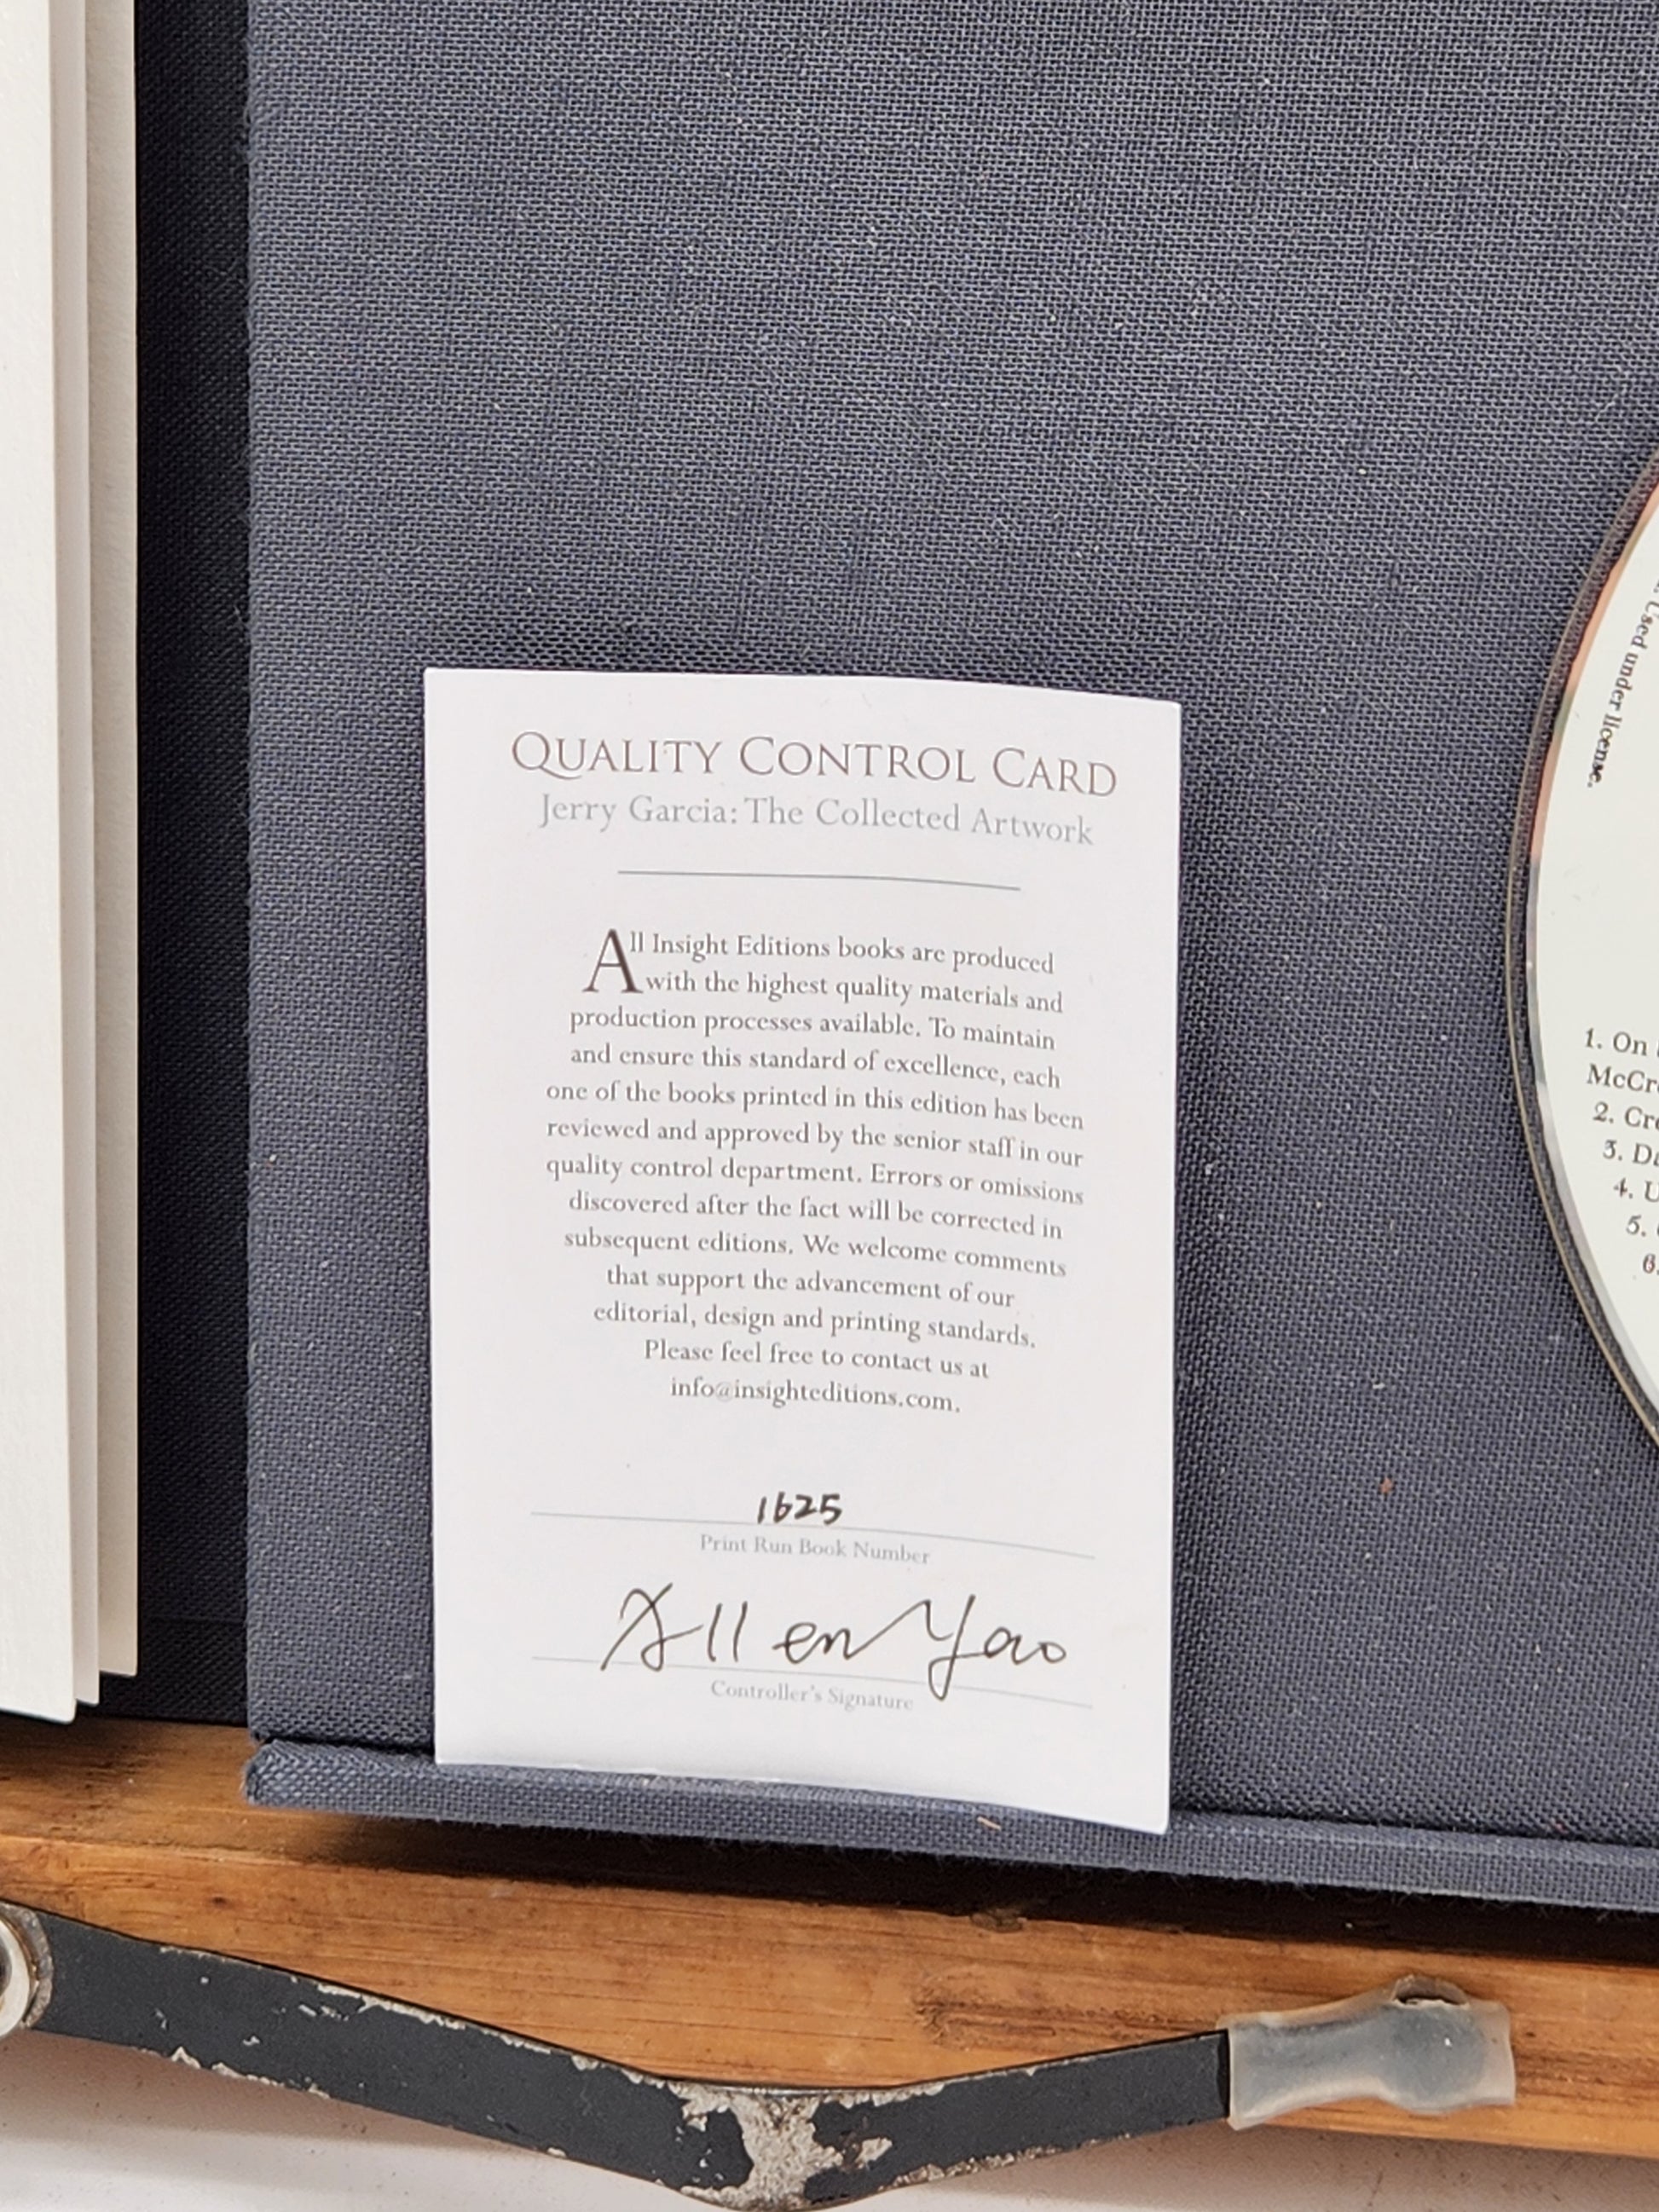 QUALITY CONTROL CARD
Jerry Garcia: The Collected Artwork
All Insight Editions books are produced
with the highest quality materials and
production processes available. To maintain
and ensure this standard of excellence, each
one of the books printed in this edition has been
reviewed and approved by the senior staff in our
quality control department. Errors or omissions
discovered after the fact will be corrected in
subsequent editions. We welcome comments
that support the advancement of our
editorial, design and printing standards.
Please feel free to contact us at
info@insighteditions.com.
1625
Print Run Book Number
Allen Yao
Controller's Signature
Used under license.
1. On
2.
3.
4.
5.
6.